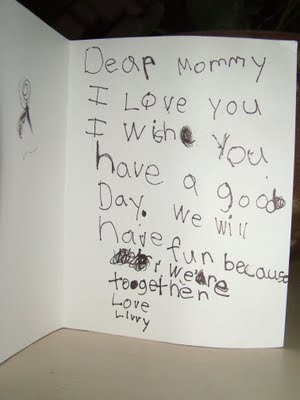 Dear Mommy
I Love you
I wish you
have a good
Day. we will
have fun because
we are
toogethere
Love
Livvy